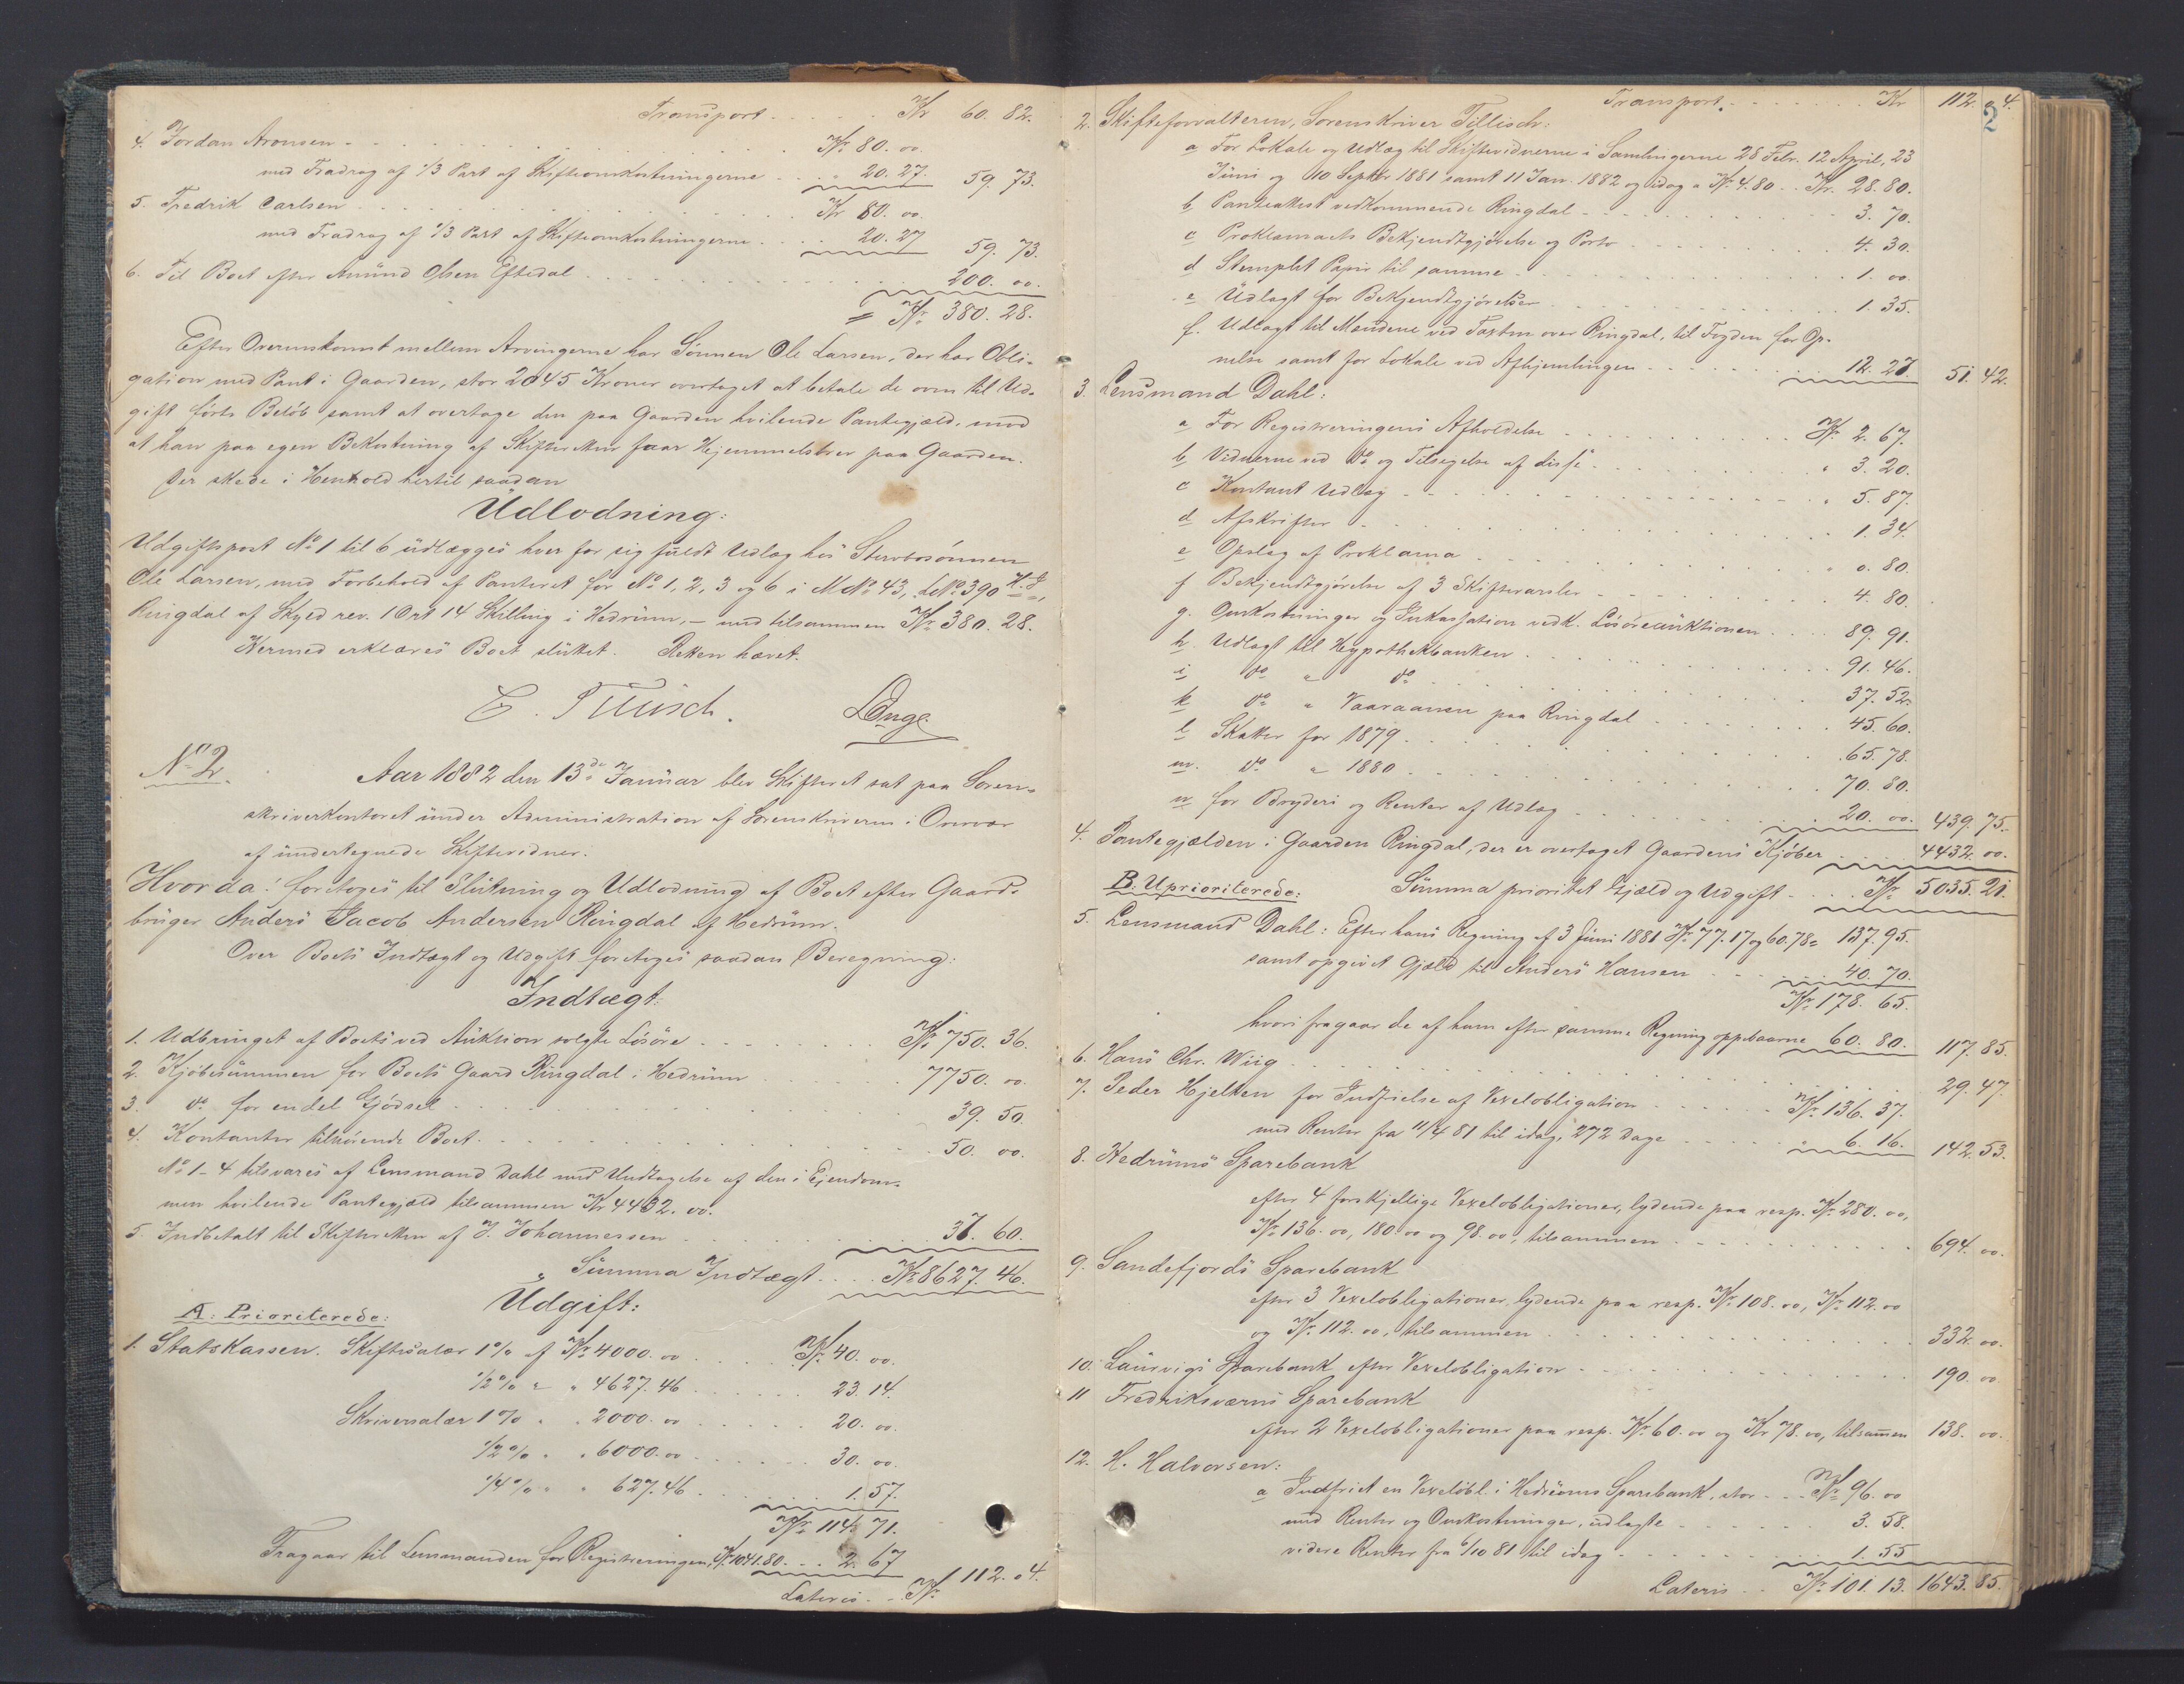 Transport . . . . . Kr 60. 82.
4. Jordan Aronsen . . . . . Kr. 80. 00.
med Fradrag af 1/3 Part af Skifteomkostningerne . . . 20. 27. 59. 73.
5. Fredrik Carlsen . . . . . Kr 80. 00.
med Fradrag af 1/3 Part af Skifteomkostningerne . . . 20. 27 59. 73.
6. Til Boet efter Amund Olsen Eftedal . . . . . 200. 00.
= Kr. 380. 28.
Efter Overenskomst mellem Arvingerne har Sönnen Ole Larsen, der har Obli-
gation med Pant i Gaarden, stor 2045 Kroner overtaget at betale de oven til Ud-
gift förte Belöb samt at overtage den paa Gaarden hvilende Pantegjæld, mod
at han paa egen Bekostning af Skifteretten faar Hjemmelsbrev paa Gaarden.
Der skede i Henhold hertil saadan
Udlodning:
Udgiftspost No 1 til 6 udlægges hver for sig fuldt Udlæg hos Stervbosönnen
Ole Larsen, med Forbehold af Panteret for No 1, 2, 3 og 6 i M No 43, L No 390
Ringdal af Skyld rev. 1 Ort 14 Skilling i Hedrum, – med tilsammen Kr. 380. 28.
Hermed erklæres Boet sluttet. Retten hævet.
C. Tillisch. Lange
No 2. Aar 1882 den 13de Januar blev Skifteret sat paa Soren-
skriverkontoret under Administration af Sorenskriveren i Overvær
af undertegnede Skiftevidner.
Hvorda: foretoges til Slutning og Udlodning af Boet efter Gaard-
bruger Anders Jacob Andersen Ringdal af Hedrum.
Over Boets Indtægt og Udgift foretoges saadan Beregning:
Indtægt:
1. Udbringet af Boets ved Auktion solgte Lösöre . . . . Kr. 750. 36.
2. Kjöbesummen for Boets Gaard Ringdal i Hedrum . . . . 7750. 00.
3. do for endel Gjödsel . . . . 39. 50.
4. Kontanter tilhörende Boet . . . . 50. 00.
No 1–4 tilsvares af Lensmand Dahl med Undtagelse af den i Eiendom-
men hvilende Pantegjæld tilsammen Kr 4432. 00.
5. Indbetalt til Skifteretten af J. Johannessen . . . . 37. 60.
Summa Indtægt . . . Kr. 8627. 46.
Udgift:
A: Prioriterede:
1. Statskassen. Skiftesalær 1% af Kr. 4000. 00 . . . Kr. 40. 00.
1/2% " " 4627. 46 . . . . 23. 14.
Skriversalær 1% " " 2000. 00 . . . . 20. 00.
1/2% " " 6000. 00 . . . . 30. 00.
1/4% " " 627. 46 . . . . 1. 57.
Kr. 114. 71.
Fragaar til Lensmanden for Registreringen, Kr 1041. 80 . . . 2. 67
112. 04.
Lateris . . Kr.
Transport. . . . . Kr 112. 04.
2
2. Skifteforvalteren, Sorenskriver Tillisch:
a For Lokale og Udlæg til Skiftevidnerne i Samlingerne 28 Febr. 12 April, 23
Juni og 10 Septbr. 1881 samt 11 Jan. 1882 og idag a Kr. 4. 80 . . Kr. 28. 80.
b Panteattest vedkommende Ringdal . . . . 3. 70.
c Proklamaets Bekjendtgjörelse og Porto . . . . 4. 30.
d Stemplet Papir til samme . . . . 1. 00.
e Udlagt for Bekjendtgjörelser . . . . 1. 35.
f. Udlagt til Mændene ved Taxten over Ringdal, til Fogden for Op-
nelse samt for Lokale ved Afhjemlingen . . . . 12. 27. 51. 42.
3. Lensmand Dahl:
a For Registreringens Afholdelse . . . . Kr. 2. 67.
b Vidnerne ved do og Tilsigelse af disse . . . . " 3. 20.
c Kontant Udlæg . . . . " 5. 87.
d Afskrifter . . . . 1. 34.
e Opslag af Proklama . . . . " 0. 80.
f Bekjendtgjörelse af 3 Skiftevarsler . . . . 4. 80.
g. Omkostninger og Inkassation vedk. Lösöreauktionen . . . . 89. 91.
h. Udlagt til Hypothekbanken . . . . 91. 46.
i do " do . . . . 37. 52.
k do " Vaaraanen paa Ringdal . . . . 45. 60.
l Skatter for 1879 . . . . 65. 78.
m. do " 1880 . . . . 70. 80.
n for Bryderi og Renter af Udlæg . . . . 20. 00. 439. 75.
4. Pantegjælden i Gaarden Ringdal, der er overtaget Gaardens Kjöber . . . . 4432. 00.
Summa prioritet Gjæld og Udgift . . . Kr. 5035. 21.
B. Uprioriterede:
5. Lensmand Dahl: Efter hans Regning af 3 Juni 1881 Kr. 77. 17 og 60. 78 = 137. 95.
samt opgivet Gjæld til Anders Hansen . . . . 40. 70.
Kr. 178. 65.
hvori fragaar de af ham efter samme Regning oppebaarne 60. 80. 117. 85.
6. Hans Chr. Wiig . . . . 29. 47.
7. Peder Hjelten for Indfrielse af Vexelobligation . . . . Kr. 136. 37.
med Renter fra 11/4 81 til idag, 272 Dage . . . . " 6. 16. 142. 53.
8. Hedrums Sparebank
efter 4 forskjellige Vexelobligationer, lydende paa resp. Kr. 280. 00,
Kr. 136. 00, 180. 00 og 98. 00, tilsammen . . . . 694. 00.
9. Sandefjords Sparebank
efter 3 Vexelobligationer, lydende paa resp. Kr. 108. 00, Kr. 112. 00
og Kr. 112. 00, tilsammen . . . . 332. 00.
10. Laurvigs Sparebank efter Vexelobligation . . . . 190. 00.
11 Fredriksværns Sparebank
efter 2 Vexelobligationer paa resp. Kr. 60. 00 og Kr 78. 00, tilsammen 138. 00.
12. H. Halvorsen:
a Indfriet en Vexelobl. i Hedrums Sparebank, stor . . . Kr. 96. 00
med Renter og Omkostninger, udlagte . . . . 3. 58.
videre Renter fra 6/10 81 til idag . . . . 1. 55
Lateris . . Kr. 101. 13. 1643. 85.